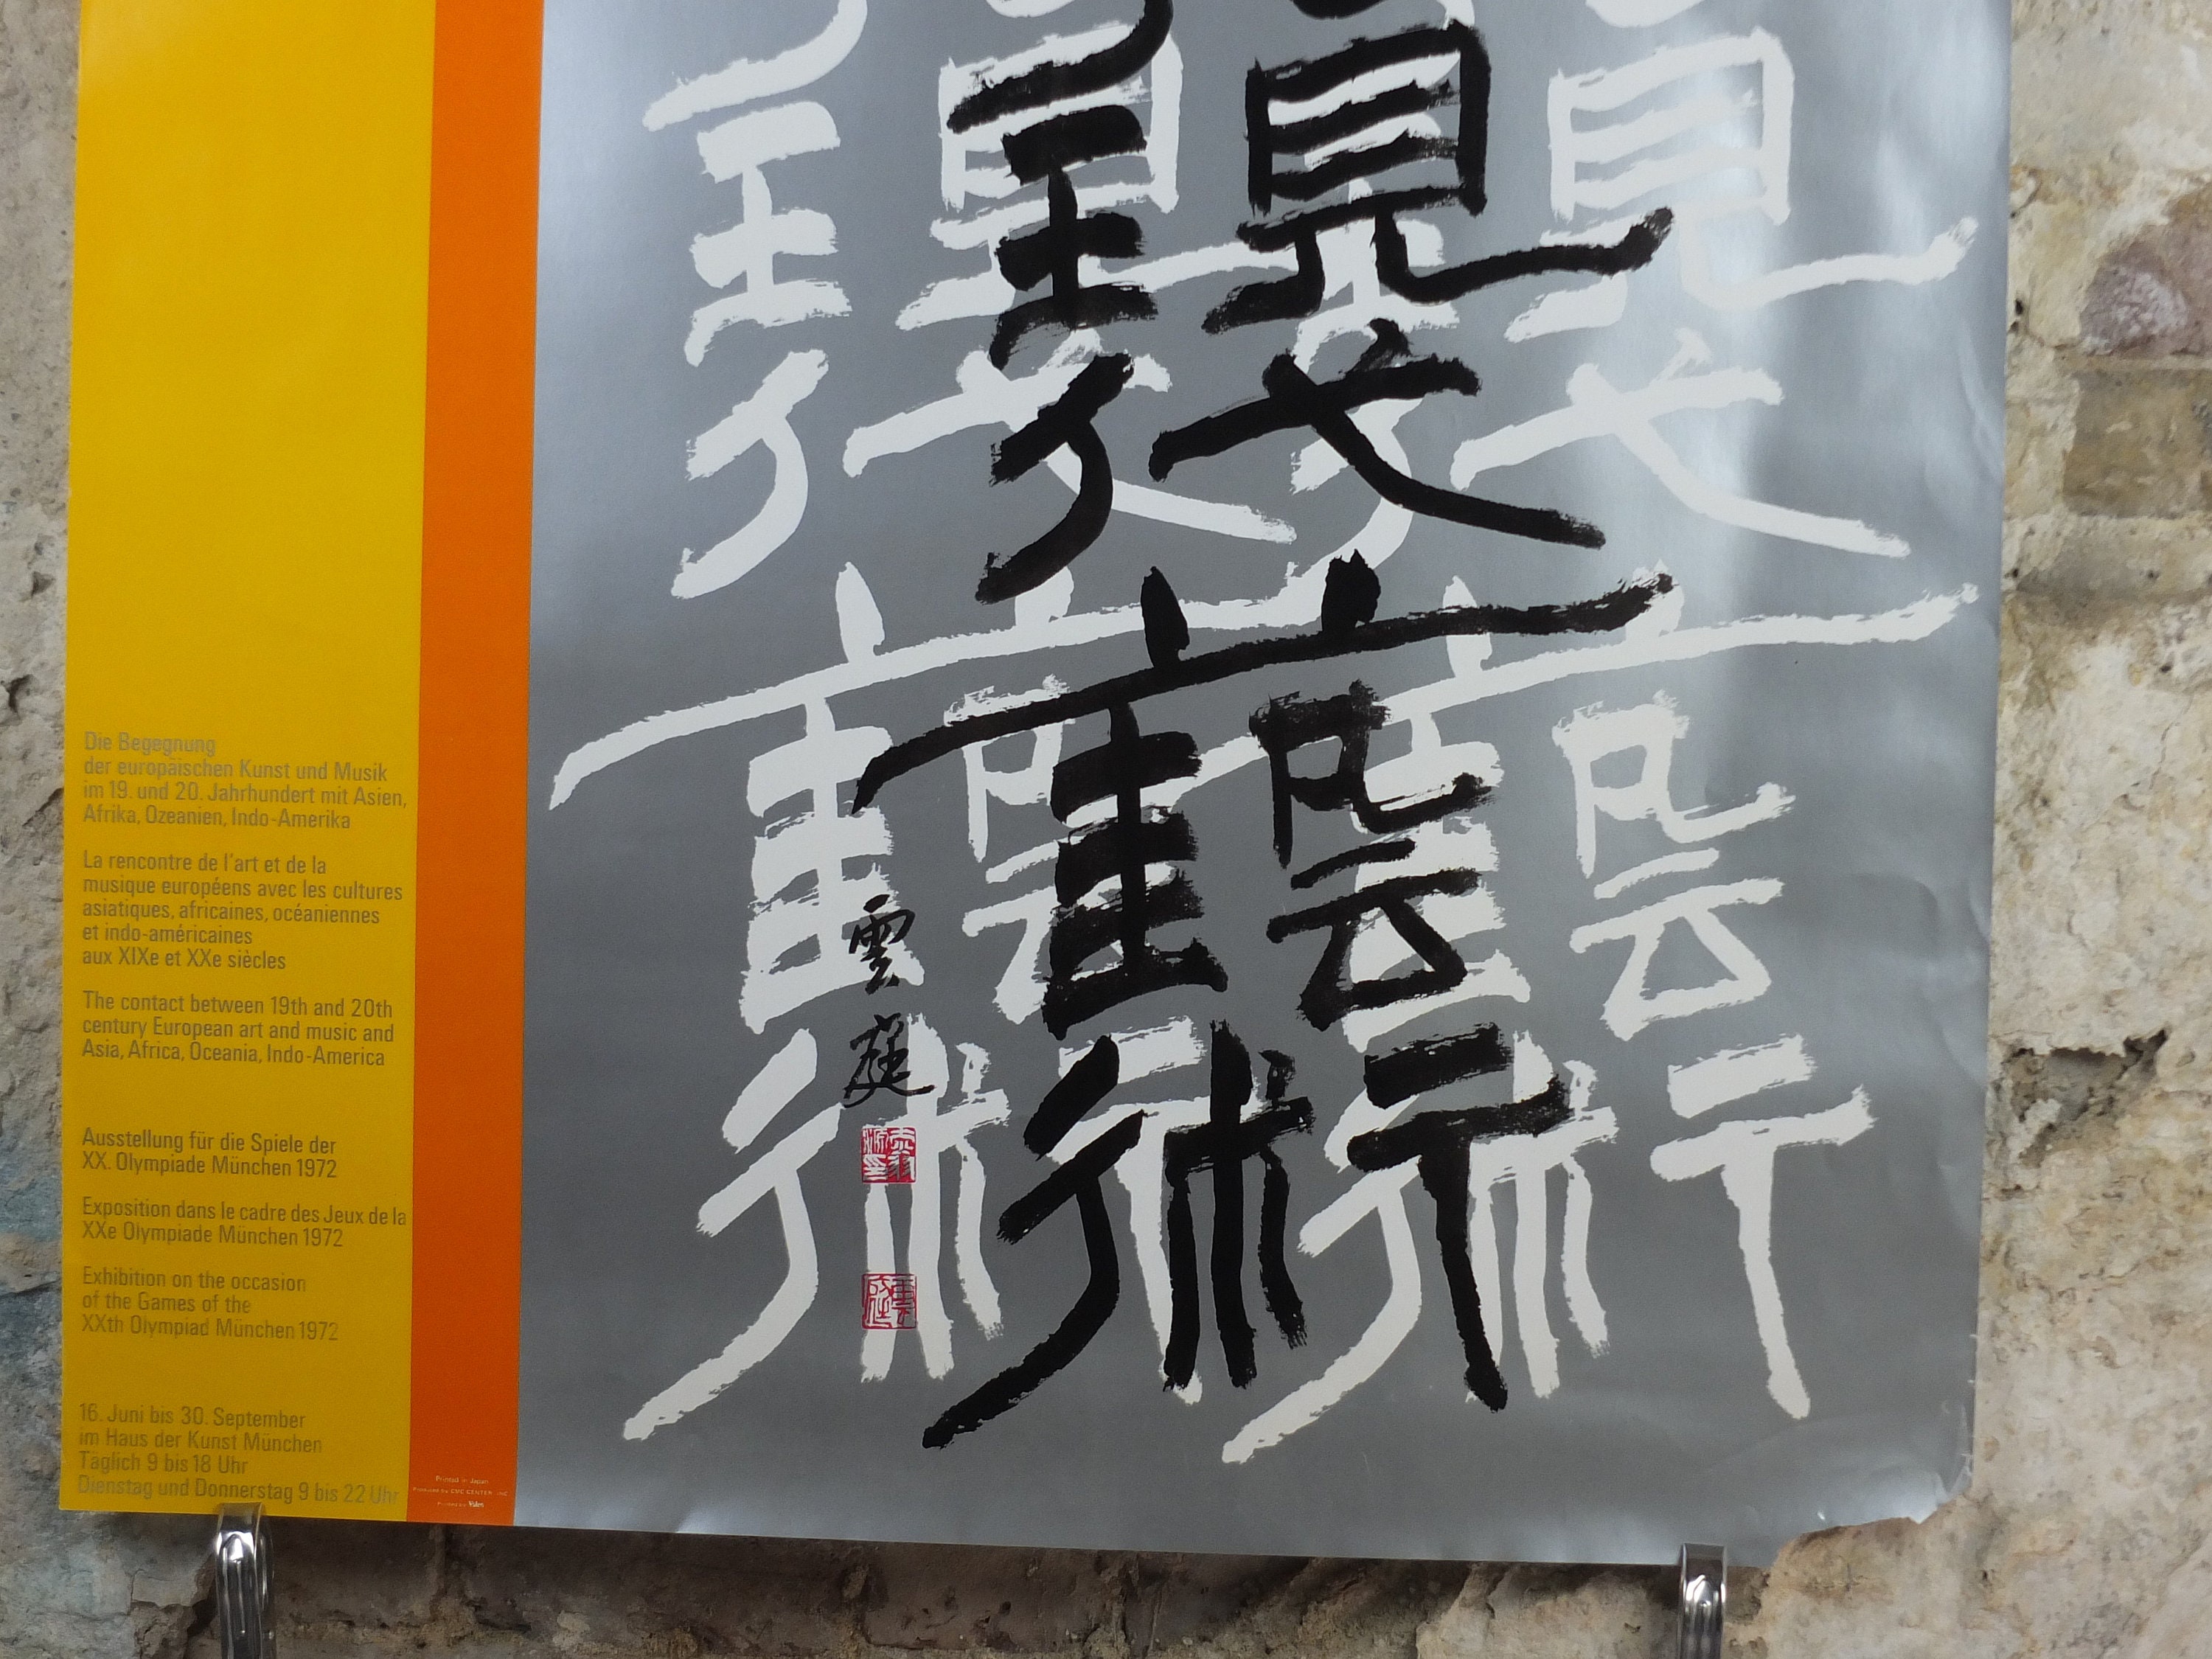 Die Begegnung
der europäischen Kunst und Musik
im 19. und 20. Jahrhundert mit Asien,
Afrika, Ozeanien, Indo-Amerika
La rencontre de l'art et de la
musique européens avec les cultures
asiatiques, africaines, océaniennes
et indo-américaines
aux XIXe et XXe siècles
The contact between 19th and 20th
century European art and music and
Asia, Africa, Oceania, Indo-America
Ausstellung für die Spiele der
XX. Olympiade München 1972
Exposition dans le cadre des Jeux de la
XXe Olympiade München 1972
Exhibition on the occasion
of the Games of the
XXth Olympiad München 1972
16. Juni bis 30. September
im Haus der Kunst München
Täglich 9 bis 18 Uhr
Dienstag und Donnerstag 9 bis 22 Uhr
Printed in Japan
Produced by CMC CENTER, INC.
Printed by
現代藝術
雲庭